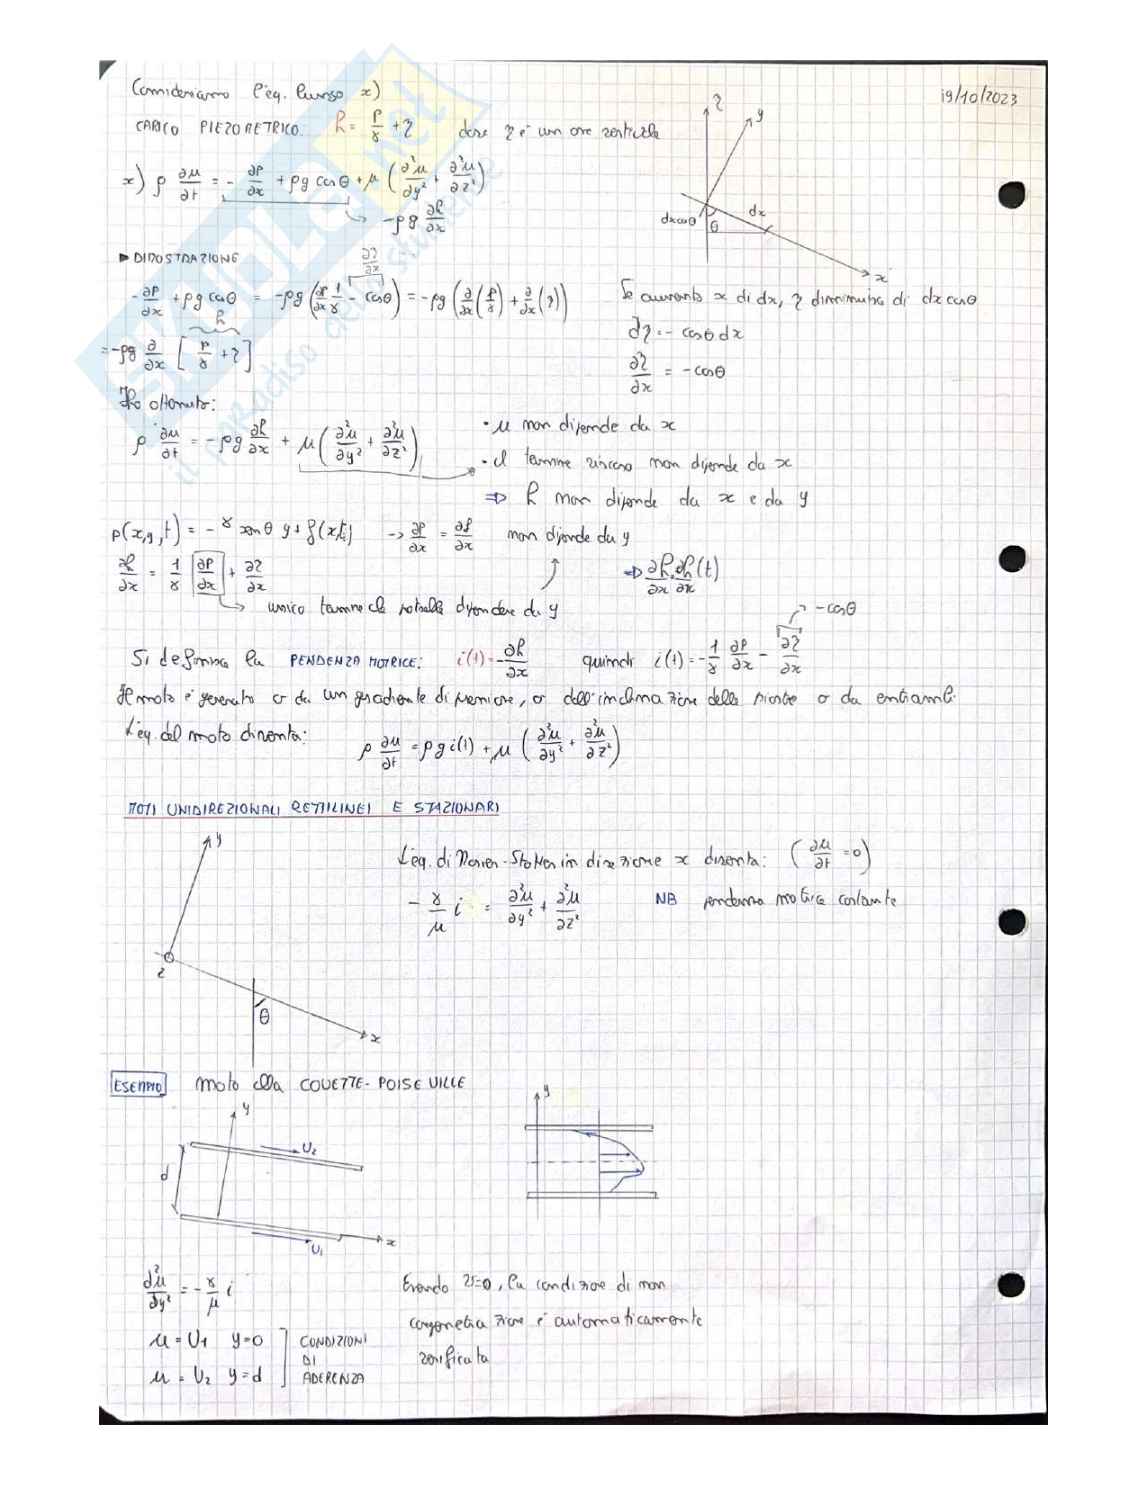 19/10/2023
Consideriamo l'eq. lungo x)
CARICO PIEZOMETRICO h = p/γ + z dove z è un asse verticale
x) ρ ∂u/∂t = - ∂p/∂x + ρg cosθ + μ (∂²u/∂y² + ∂²u/∂z²)
-ρg ∂h/∂x
z y x dx dx cosθ θ
▶ DIMOSTRAZIONE
∂z/∂x
-∂p/∂x + ρg cosθ = -ρg (∂p/∂x 1/γ - cosθ) = -ρg (∂/∂x (p/γ) + ∂/∂x (z))
h
= -ρg ∂/∂x [p/γ + z]
Se aumento x di dx, z diminuisce di dx cosθ
dz = - cosθ dx
∂z/∂x = - cosθ
Ho ottenuto:
ρ ∂u/∂t = -ρg ∂h/∂x + μ (∂²u/∂y² + ∂²u/∂z²)
• u non dipende da x
• il termine viscoso non dipende da x
⇒ h non dipende da x e da y
p(x,y,t) = -γ senθ y + f(x,t) → ∂p/∂x = ∂f/∂x non dipende da y
∂h/∂x = 1/γ ∂p/∂x + ∂z/∂x
⇒ ∂h/∂x = ∂h/∂x (t)
unico termine che potrebbe dipendere da y
- cosθ
Si definisce la PENDENZA MOTRICE: i(t) = -∂h/∂x quindi i(t) = -1/γ ∂p/∂x - ∂z/∂x
Il moto è generato o da un gradiente di pressione, o dall'inclinazione delle piastre o da entrambi.
L'eq. del moto diventa: ρ ∂u/∂t = ρg i(t) + μ (∂²u/∂y² + ∂²u/∂z²)
MOTI UNIDIREZIONALI RETTILINEI E STAZIONARI
y z θ x
L'eq. di Navier-Stokes in direzione x diventa: (∂u/∂t = 0)
- γ/μ i = ∂²u/∂y² + ∂²u/∂z² NB pendenza motrice costante
ESEMPIO moto alla COUETTE-POISEUILLE
y U₂ d x U₁
y
d²u/dy² = - γ/μ i
u = U₁ y=0
u = U₂ y=d
CONDIZIONI
DI
ADERENZA
Essendo v=0, la condizione di non
compenetrazione è automaticamente
verificata
SKUOLA.net
il paradiso dello studente